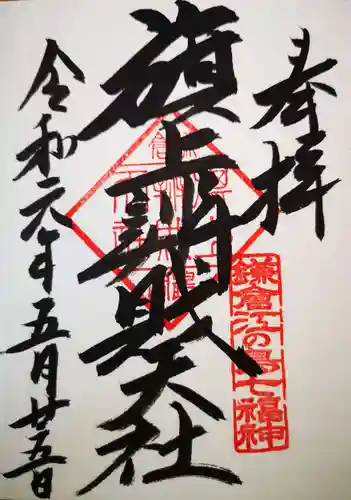 奉拝
旗上辨財天社
令和元年五月廿五日
鎌倉江の島七福神